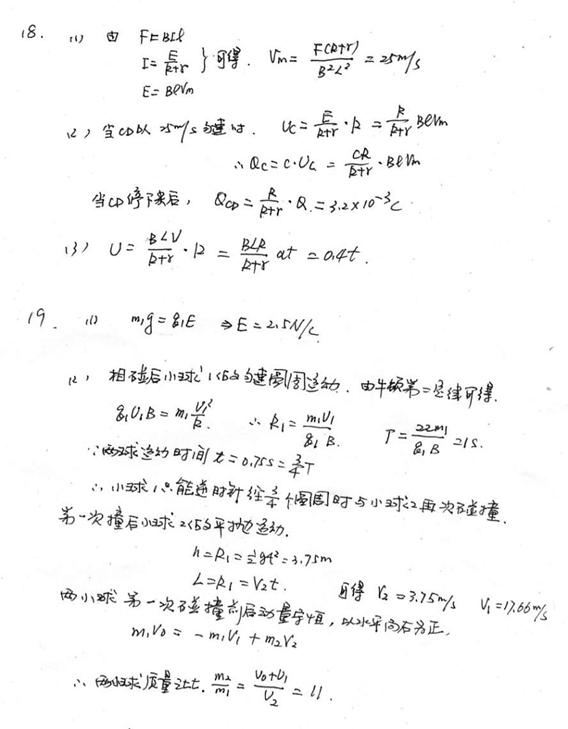 18. (1) 由 F=BIl
I=E/(R+r) } 可得. Vm=F(R+r)/B²L²=25m/s
E=BlVm
(2) 当CD以25m/s匀速时. Uc=E/(R+r)·R=R/(R+r) BlVm
∴ Qc=C·Uc=CR/(R+r)·BlVm
当CD停下来后, Q_CD=R/(R+r)·Q=3.2×10⁻³C
(3) U=BLV/(R+r)·R=BLR/(R+r) at=0.4t.
19. (1) m₁g=q₁E ⇒E=2.5N/C
(2) 相碰后小球1做匀速圆周运动. 由牛顿第二定律可得.
q₁V₁B=m₁V₁²/R. ∴ R₁=m₁V₁/q₁B. T=2πm₁/q₁B=1s.
∵两球运动时间 t=0.75s=3/4T
∴小球1只能逆时针经3/4个圆周时与小球2再次碰撞.
第一次撞后小球2做平抛运动.
h=R₁=½gt²=3.75m
L=R₁=V₂t. 可得 V₂=3.75m/s V₁=17.66m/s
两小球第一次碰撞前后动量守恒, 以水平向右为正.
m₁V₀=-m₁V₁+m₂V₂
∴两小球质量之比. m₂/m₁=(V₀+V₁)/V₂=11.